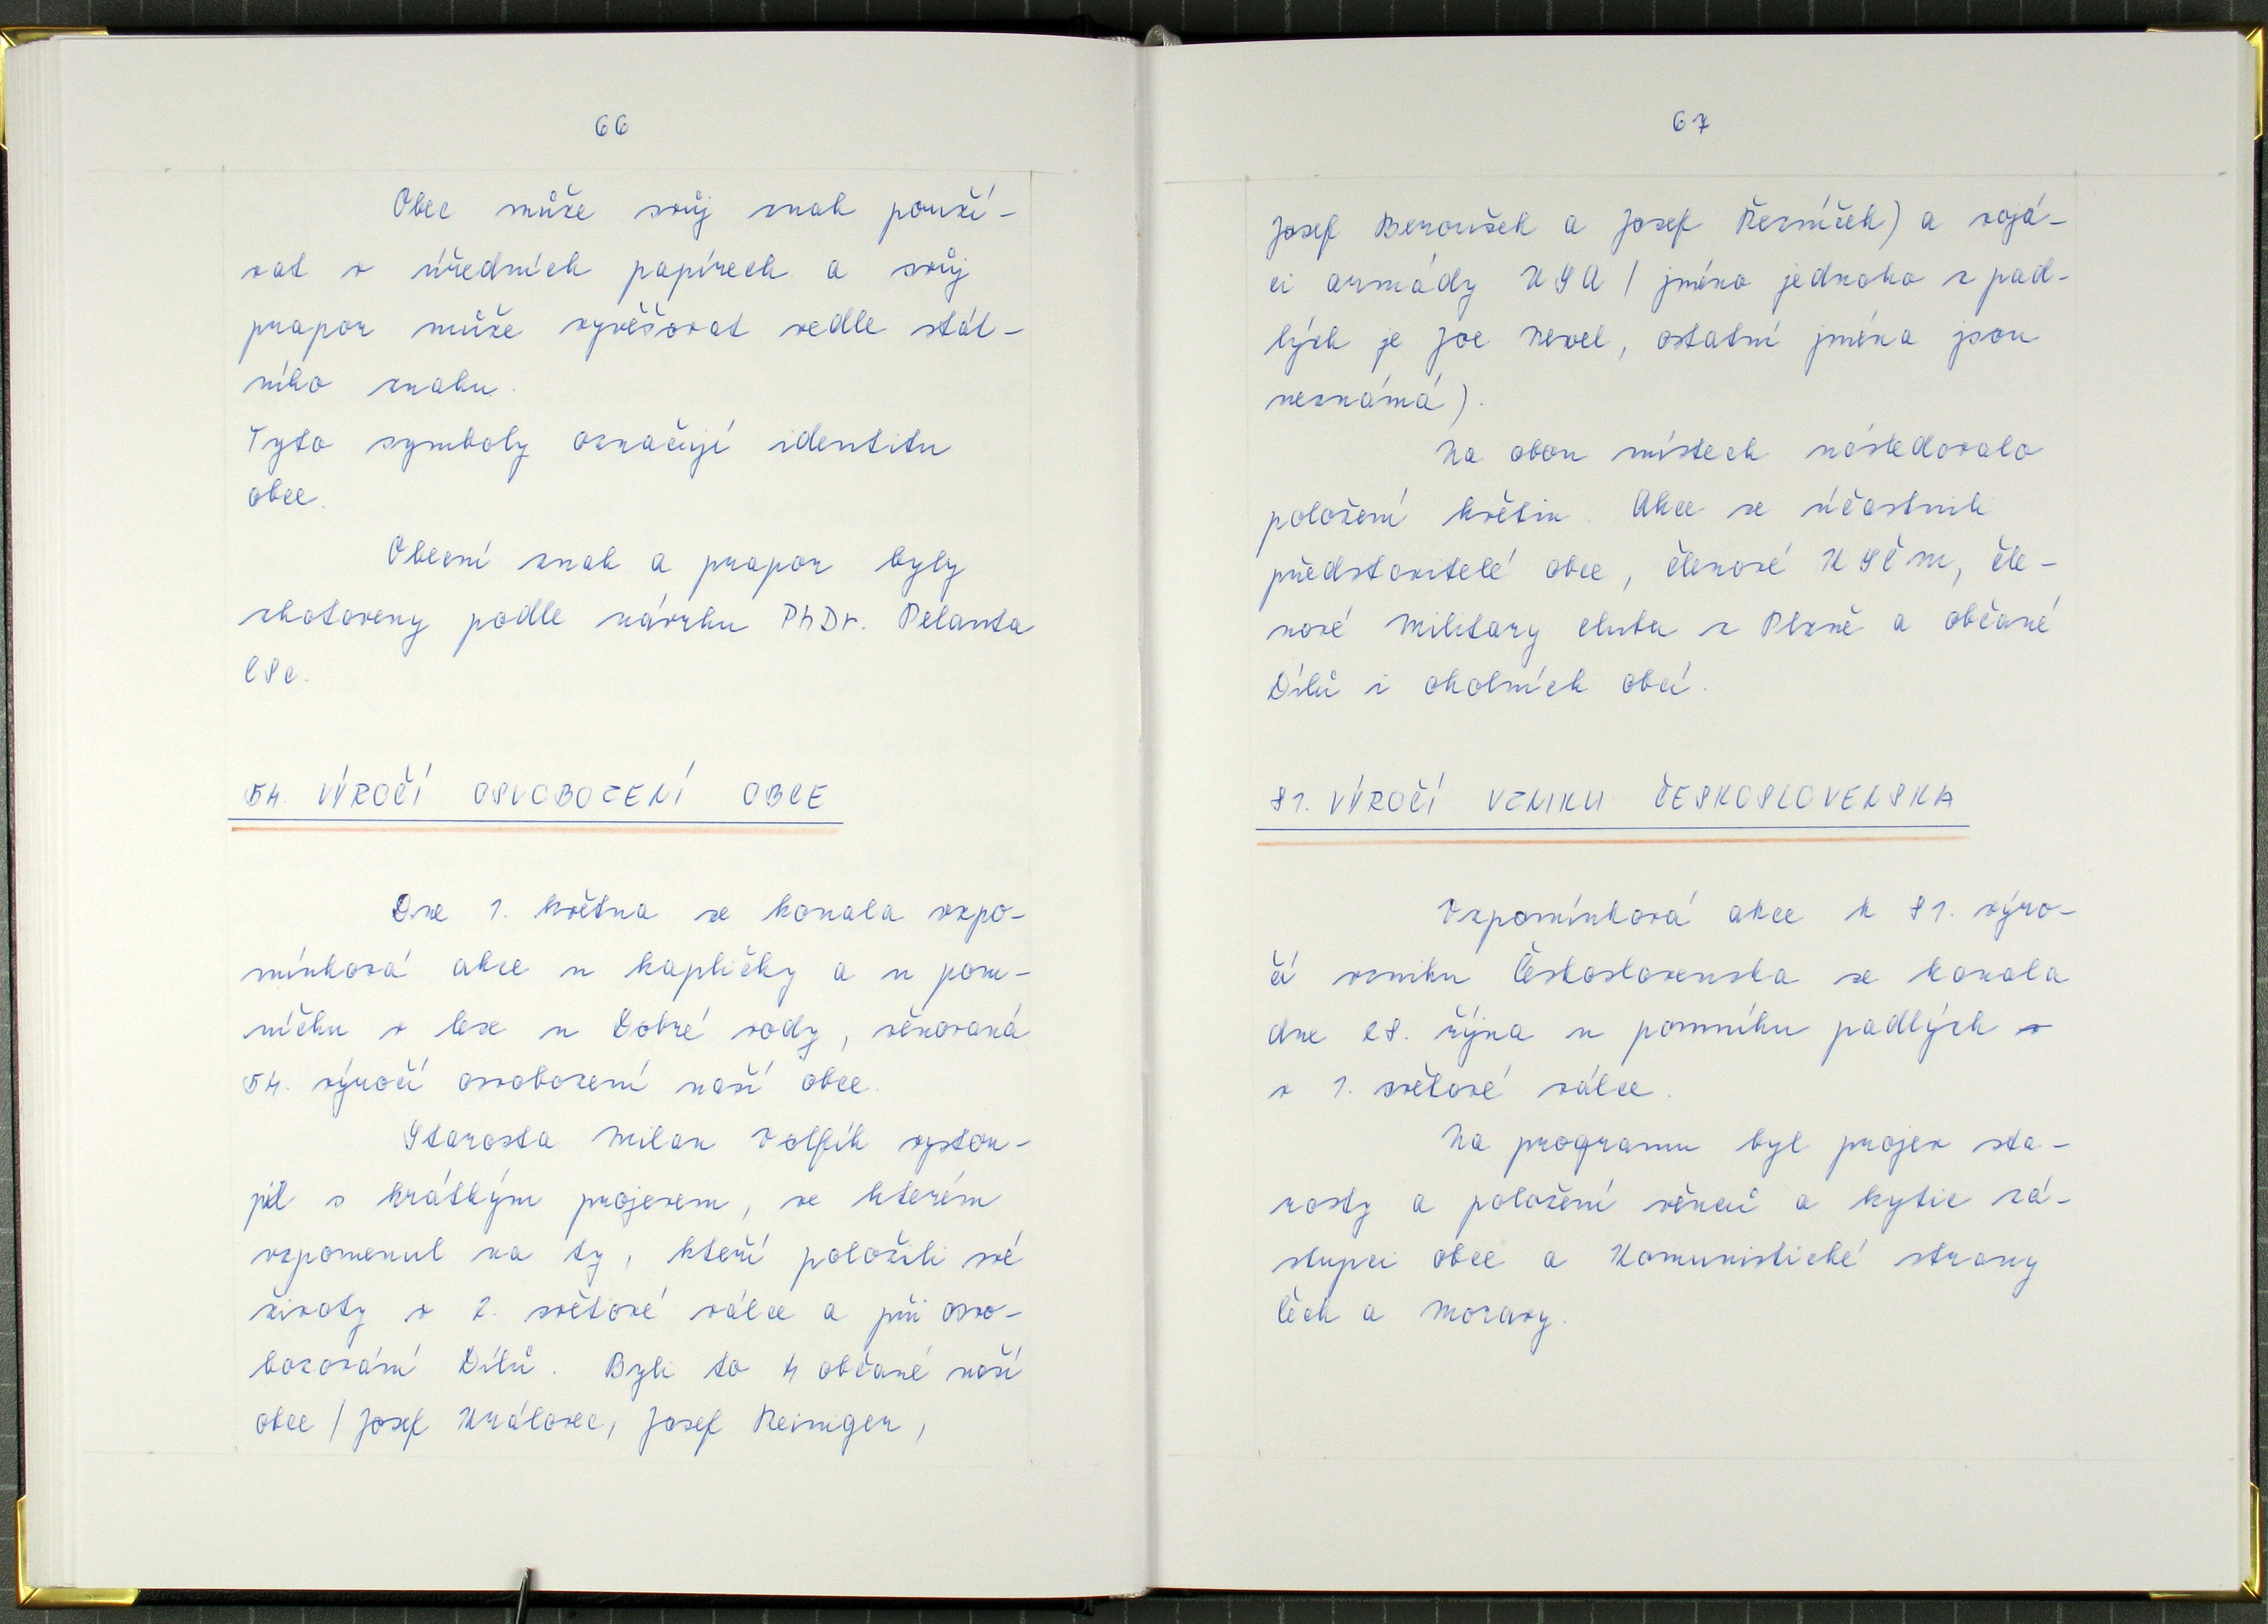 66
Obec může svůj znak použí-
vat v úředních papírech a svůj
prapor může vyvěšovat vedle stát-
ního znaku.
Tyto symboly označují identitu
obce.
Obecní znak a prapor byly
zhotoveny podle návrhu PhDr. Pelanta
CSc.
54. VÝROČÍ OSVOBOZENÍ OBCE
Dne 1. května se konala vzpo-
mínková akce u kapličky a u pom-
níčku v lese u Dobré vody, věnovaná
54. výročí osvobození naší obce.
Starosta Milan Volfík vystou-
pil s krátkým projevem, ve kterém
vzpomenul na ty, kteří položili své
životy v 2. světové válce a při osvo-
bozování Dílů. Byli to 4 občané naší
obce (Josef Královec, Josef Reiniger,
67
Josef Beroušek a Josef Řezníček) a vojá-
ci armády USA (jméno jednoho z pad-
lých je Joe Newel, ostatní jména jsou
neznámá).
Na obou místech následovalo
položení květin. Akce se účastnili
představitelé obce, členové KSČM, čle-
nové Military clubu z Plzně a občané
Dílů i okolních obcí.
81. VÝROČÍ VZNIKU ČESKOSLOVENSKA
Vzpomínková akce k 81. výro-
čí vzniku Československa se konala
dne 28. října u pomníku padlých v
v 1. světové válce.
Na programu byl projev sta-
rosty a položení věnců a kytic zá-
stupci obce a Komunistické strany
Čech a Moravy.